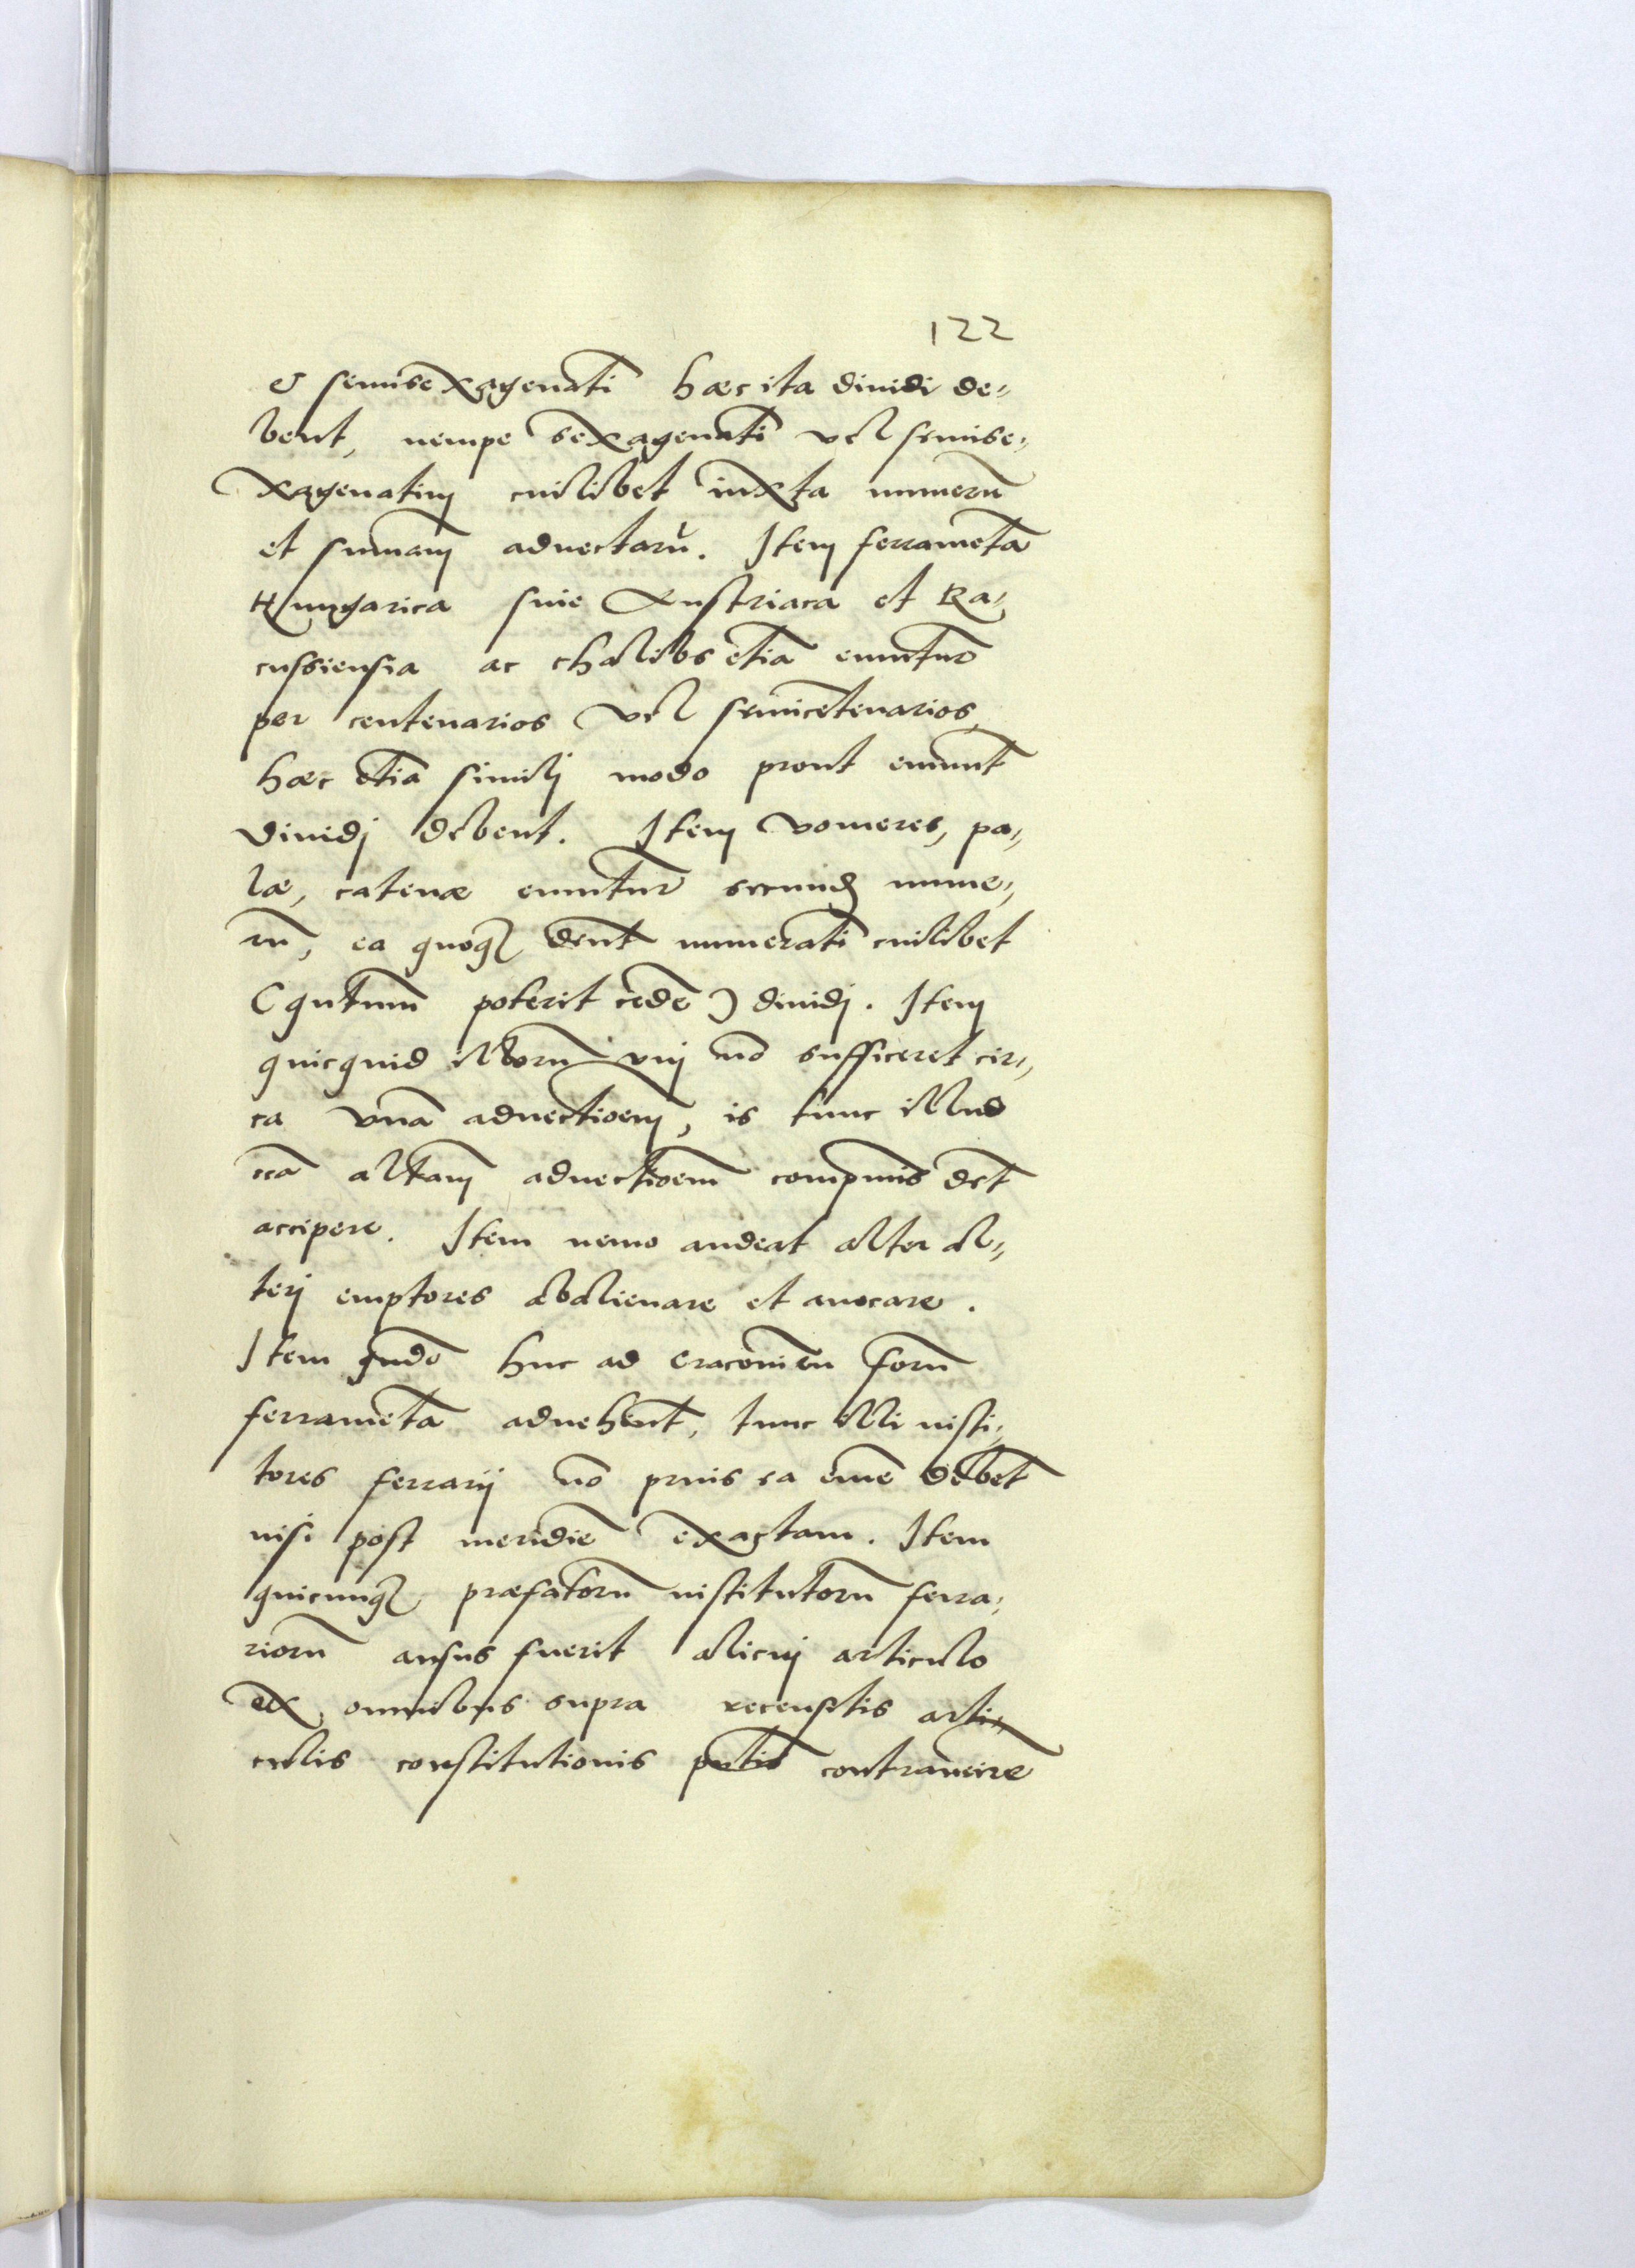 122
& semisexagenatī haec ita dividi de⸗
bent, nempe sexagenatī vel semise⸗
xagenatim cuilibet iuxta numerū
et sumam advectarū. Item ferrametā
Hungarica sive Austriaca et Ra⸗
cussiensia ac chalibs etiā emūtur
per centenarios vel semicētenarios,
haec etiā similj modo prout emunt̄
dividj debent. Item vomeres, pa⸗
lae, catenae emūtur secundū nume⸗
rū, ea quoq₃ dēnt numeratī cuilibet
(qūtum poterit cedē) dividj. Item
quicquid illorū vnj nō sufficeret cir⸗
ca vnā advectioēm, is tunc illud
ccā alteram advectioēm compīmis dēt
accipere. Item nemo audeat alter al⸗
terj emptores abalienare et avocare.
Item qn̄do huc ad Cracovien forū
ferrametā advehent̄, tunc illi īsti⸗
tores ferrarij nō prius ea emē debēt
nisi post meridiē exactam. Item
quicunq₃ praefatorū īstitutorū ferra⸗
riorū ausus fuerit alicuj articulo
ex omnibus supra recensitis arti⸗
culis constitutionis pn̄tis contravēire